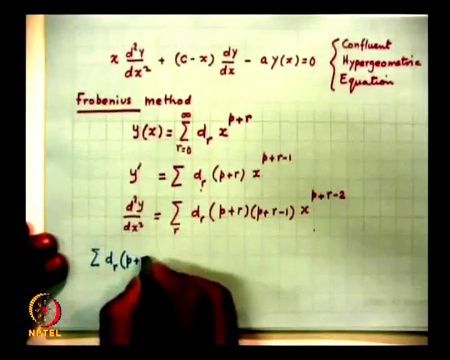 x d²y/dx² + (c-x) dy/dx - a y(x) = 0 { Confluent Hypergeometric Equation
Frobenius method
y(x) = ∑_{r=0}^{∞} d_r x^{p+r}
y' = ∑ d_r (p+r) x^{p+r-1}
d²y/dx² = ∑_r d_r (p+r)(p+r-1) x^{p+r-2}
∑ d_r (p+
NPTEL